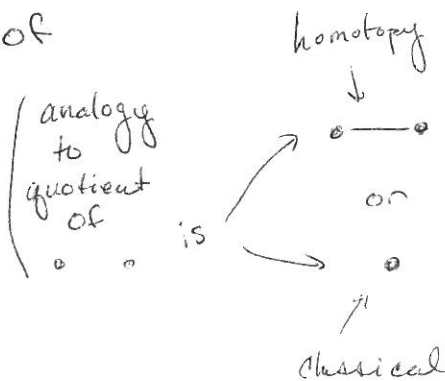 of
homotopy
(analogy
to
quotient
of
is
or
classical